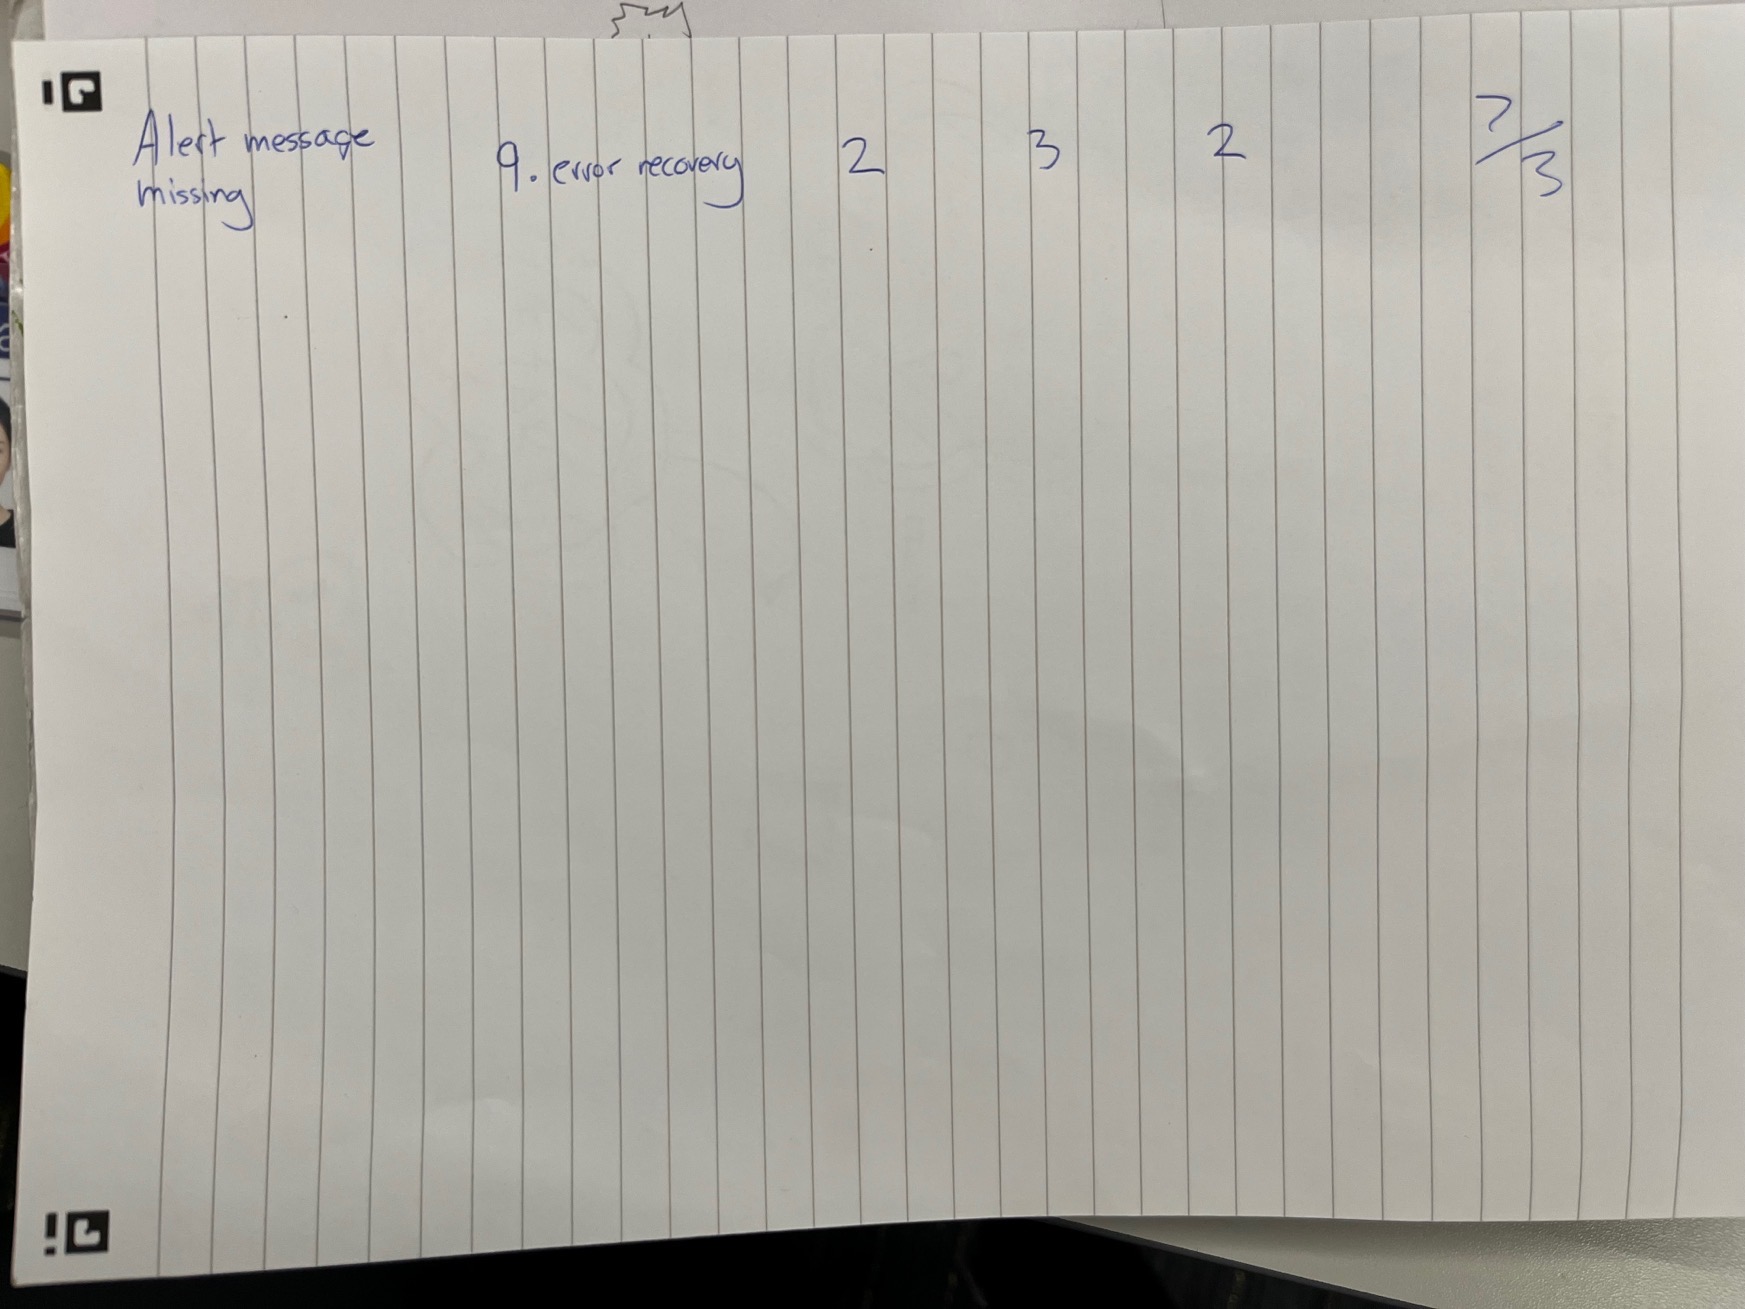 Alert message
missing
9. error recovery
2
3
2
7/3